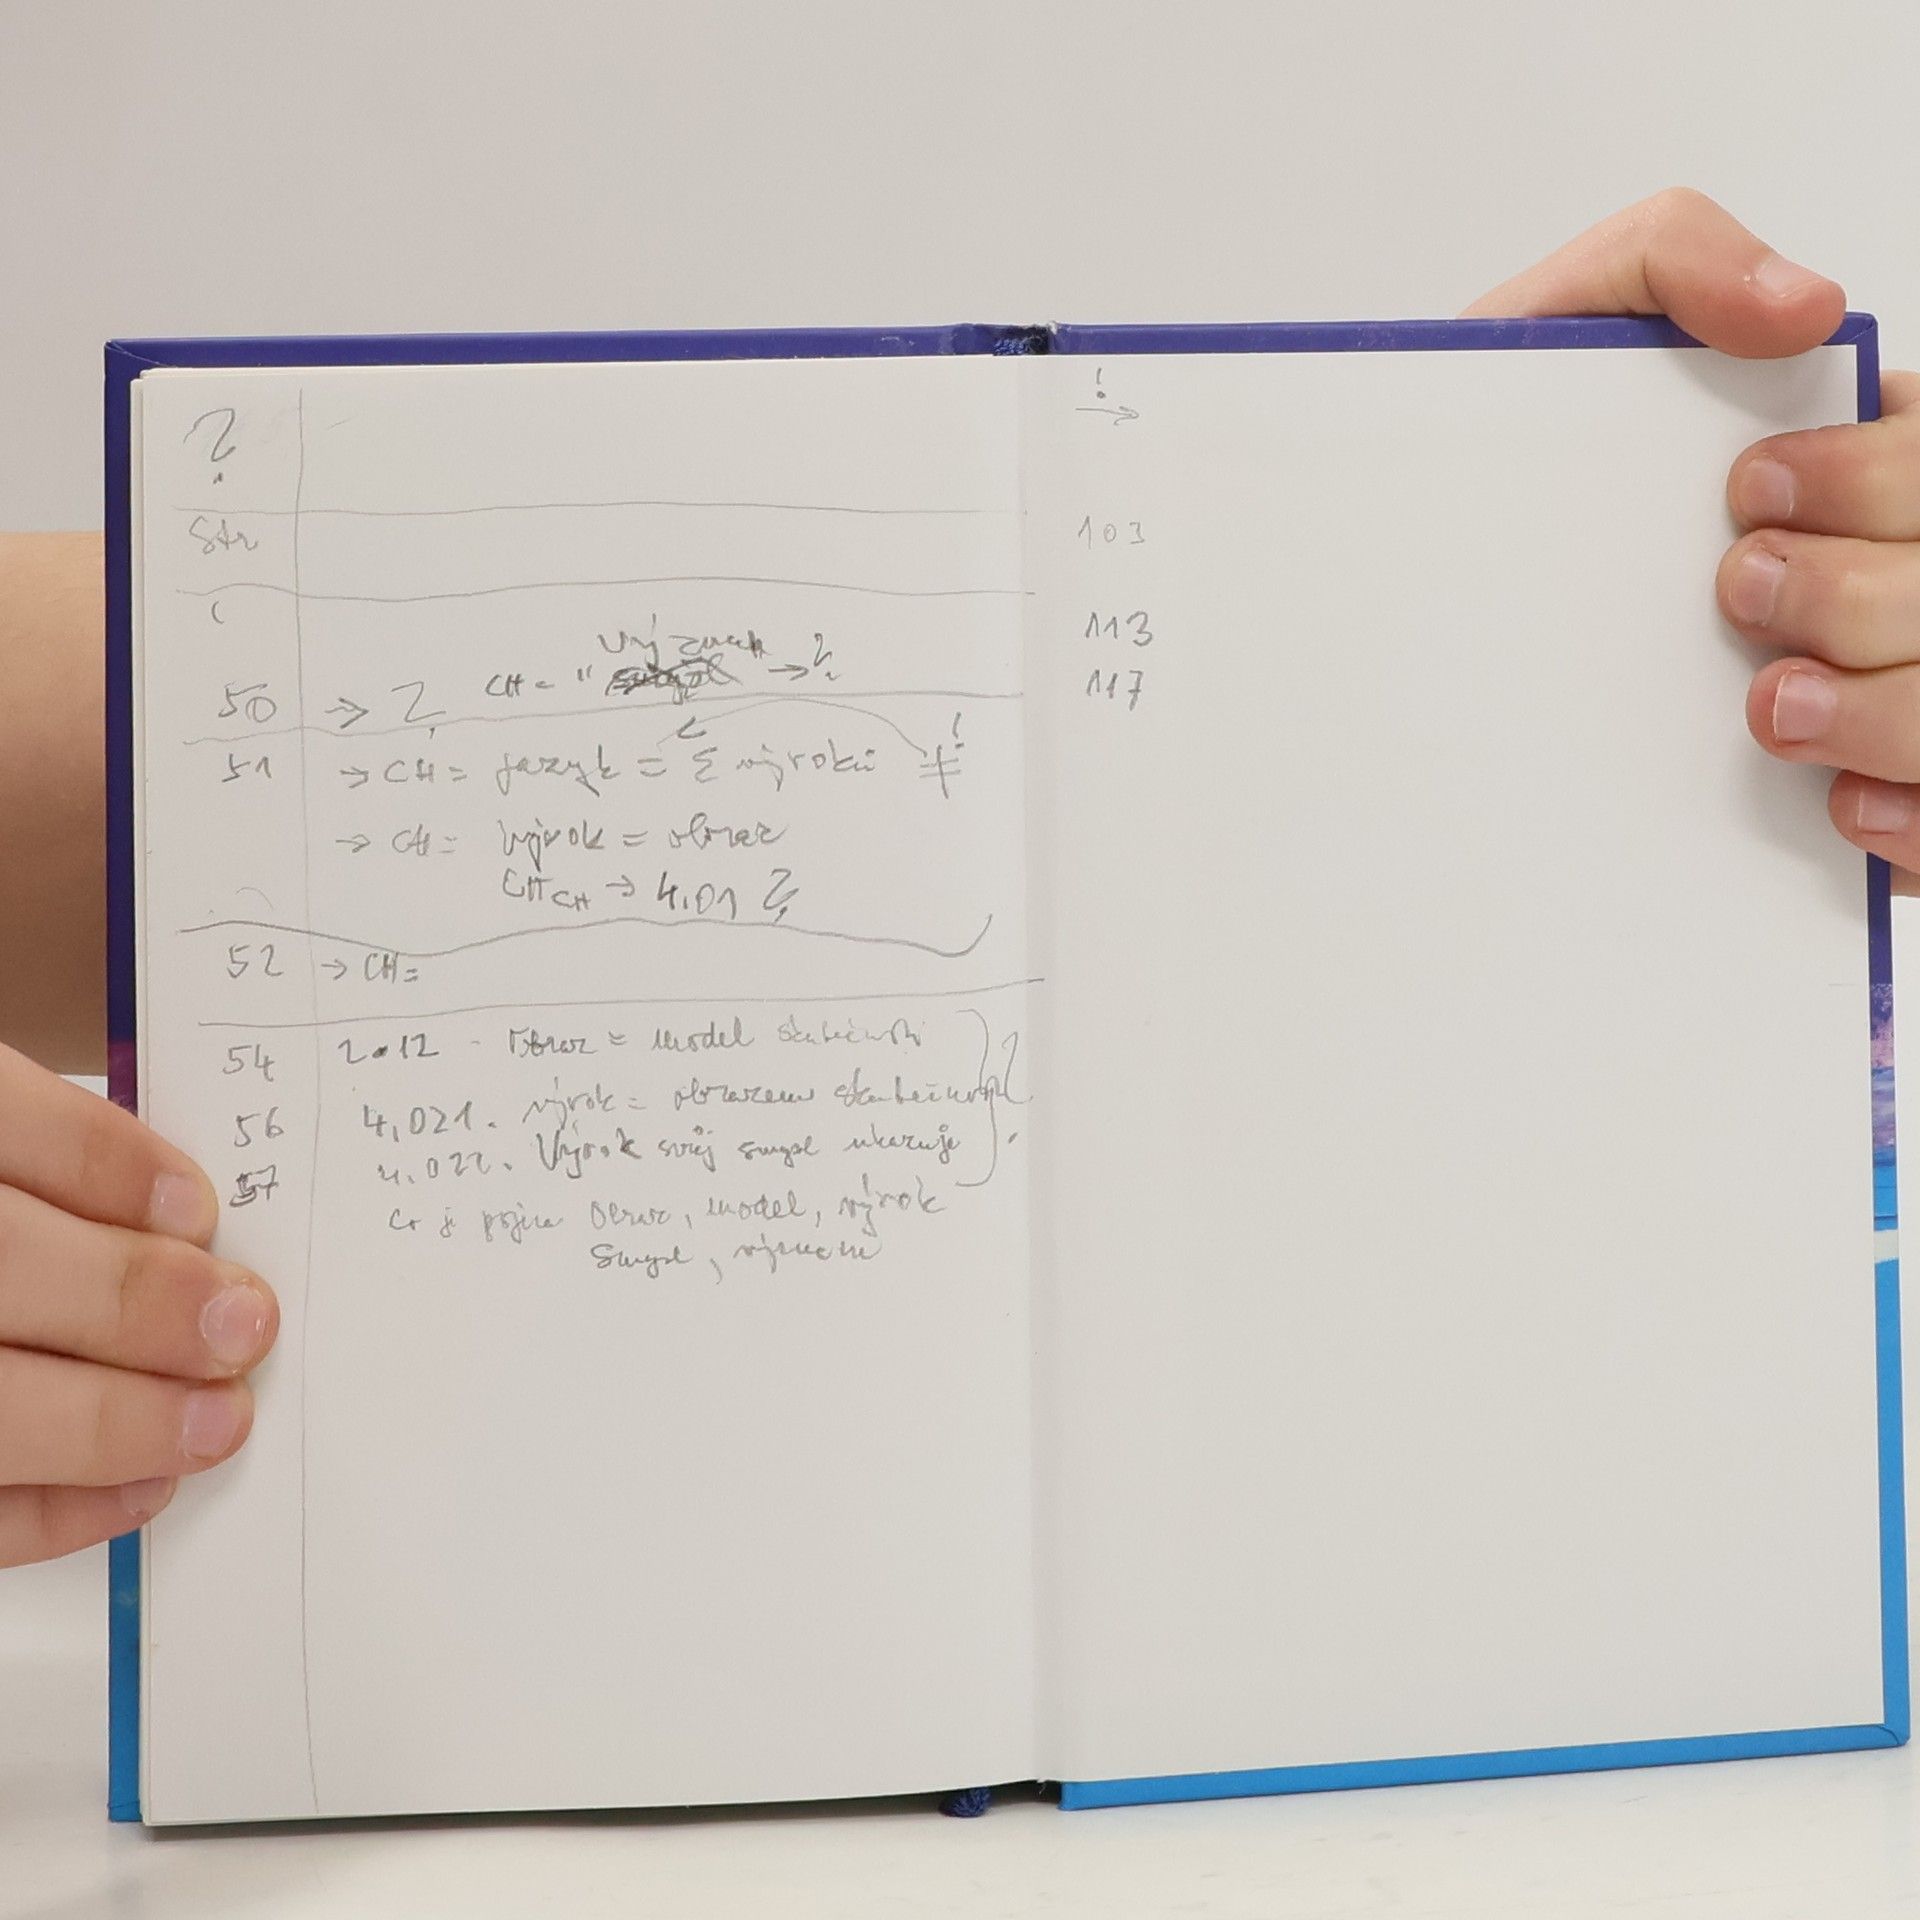 ?
Str
50 → ? CH = " význam → ?
51 → CH = jazyk = Σ výroků ≠ !
→ CH = výrok = obraz
CH CH → 4.01 ?
52 → CH =
54 2.12 - Obraz = model skutečnosti
56 4,021. výrok = obrazem skutečnosti ?
57 4.022. Výrok svůj smysl ukazuje
Co je pojem obraz, model, výrok
smysl, význam
!
→
103
113
117